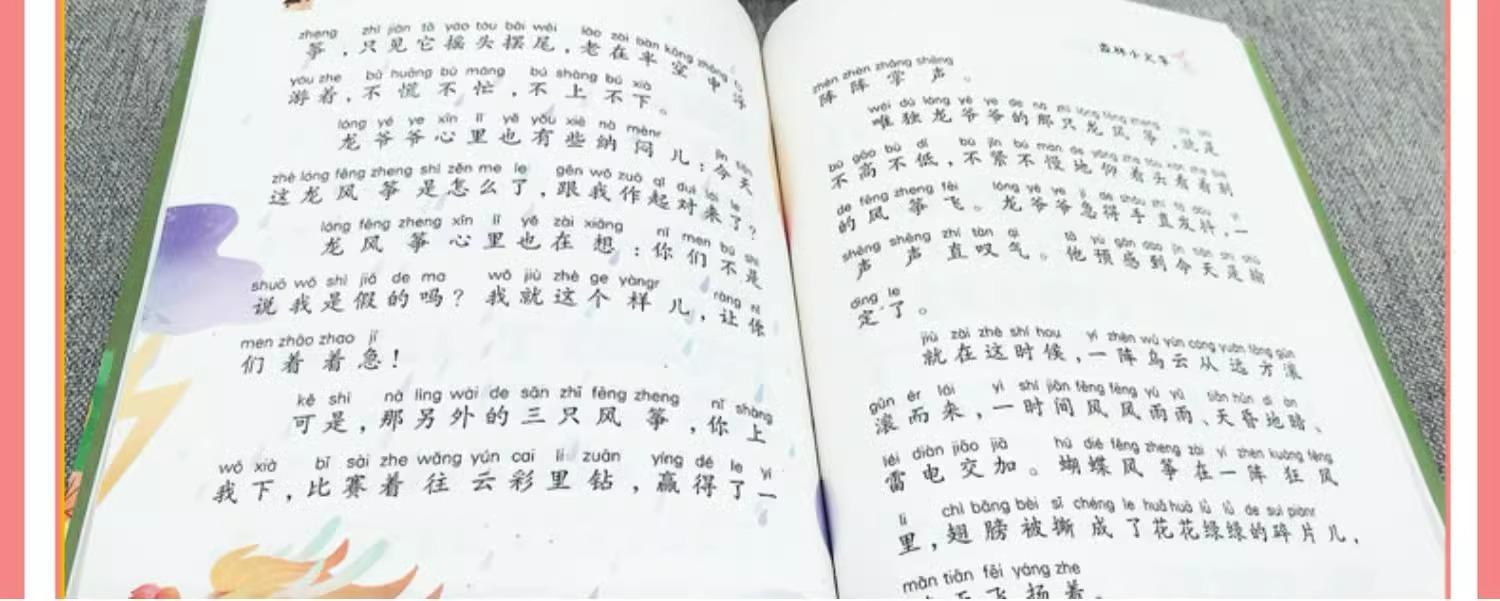 zheng zhī jiàn tā yáo tóu bǎi wěi lǎo zài bàn kōng zhōng
筝，只见它摇头摆尾，老在半空中浮
yóu zhe bù huāng bù máng bú shàng bú xià
游着，不慌不忙，不上不下。
lóng yé ye xīn lǐ yě yǒu xiē nà mènr jīn tiān
龙爷爷心里也有些纳闷儿：今天
zhè lóng fēng zheng shì zěn me le gēn wǒ zuò qǐ duì lái le
这龙风筝是怎么了，跟我作起对来了？
lóng fēng zheng xīn lǐ yě zài xiǎng nǐ men bú shì
龙风筝心里也在想：你们不是
shuō wǒ shì jiǎ de ma wǒ jiù zhè ge yàngr ràng nǐ
说我是假的吗？我就这个样儿，让你
men zháo zhao jí
们着着急！
kě shì nà lìng wài de sān zhī fēng zheng nǐ shàng
可是，那另外的三只风筝，你上
wǒ xià bǐ sài zhe wǎng yún cai li zuān yíng dé le yí
我下，比赛着往云彩里钻，赢得了一
森林小火车
zhèn zhèn zhǎng shēng
阵阵掌声。
wéi dú lóng yé ye de nà zhī lóng fēng zheng
唯独龙爷爷的那只龙风筝，就是
bù gāo bù dī bù jǐn bú màn de yǎng zhe tóu kàn zhe bié
不高不低，不紧不慢地仰着头看着别
de fēng zheng fēi lóng yé ye jí de shǒu zhí fā dǒu yì
的风筝飞。龙爷爷急得手直发抖，一
shēng shēng zhí tàn qì tā yù gǎn dào jīn tiān shì shū
声声直叹气。他预感到今天是输
dìng le
定了。
jiù zài zhè shí hou yí zhèn wū yún cóng yuǎn fāng gǔn
就在这时候，一阵乌云从远方滚
gǔn ér lái yì shí jiān fēng fēng yǔ yǔ tiān hūn dì àn
滚而来，一时间风风雨雨、天昏地暗、
léi diàn jiāo jiā hú dié fēng zheng zài yí zhèn kuáng fēng
雷电交加。蝴蝶风筝在一阵狂风
lǐ chì bǎng bèi sī chéng le huā huā lǜ lǜ de suì piànr
里，翅膀被撕成了花花绿绿的碎片儿，
mǎn tiān fēi yáng zhe
满天飞扬着。